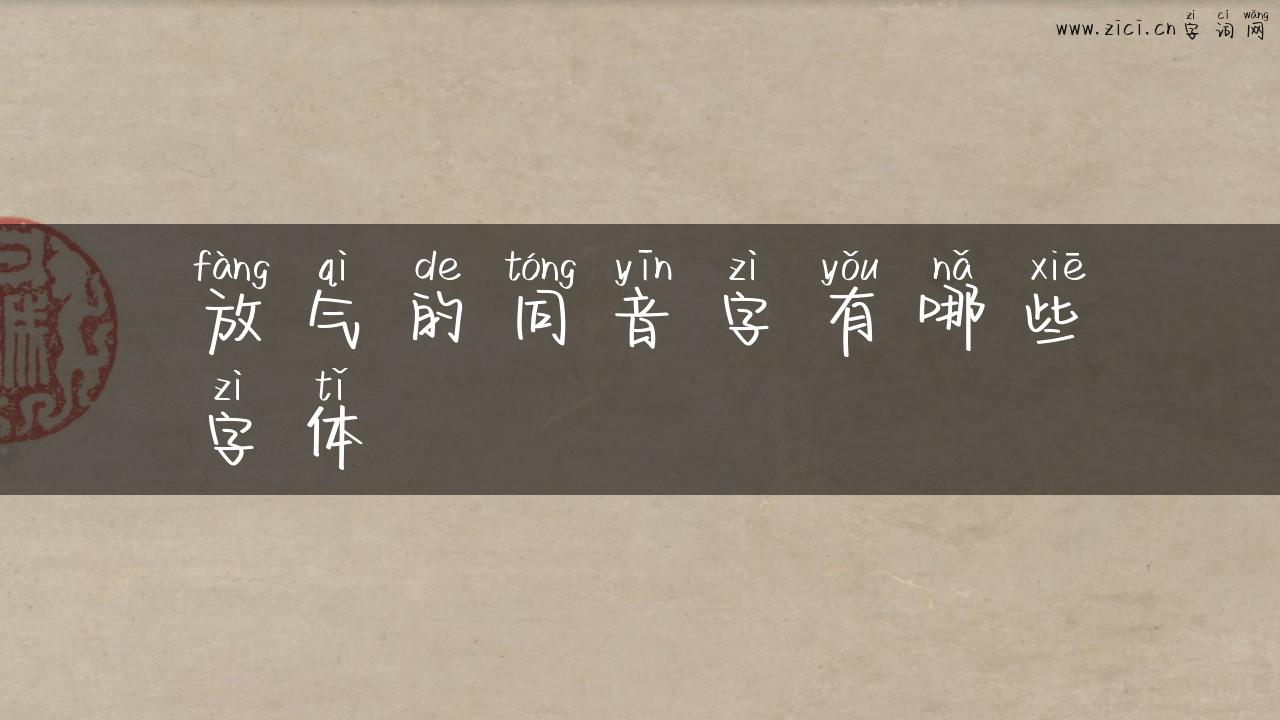 zì cí wǎng
www.zici.cn字词网
fàng qì de tóng yīn zì yǒu nǎ xiē
放气的同音字有哪些
zì tǐ
字体